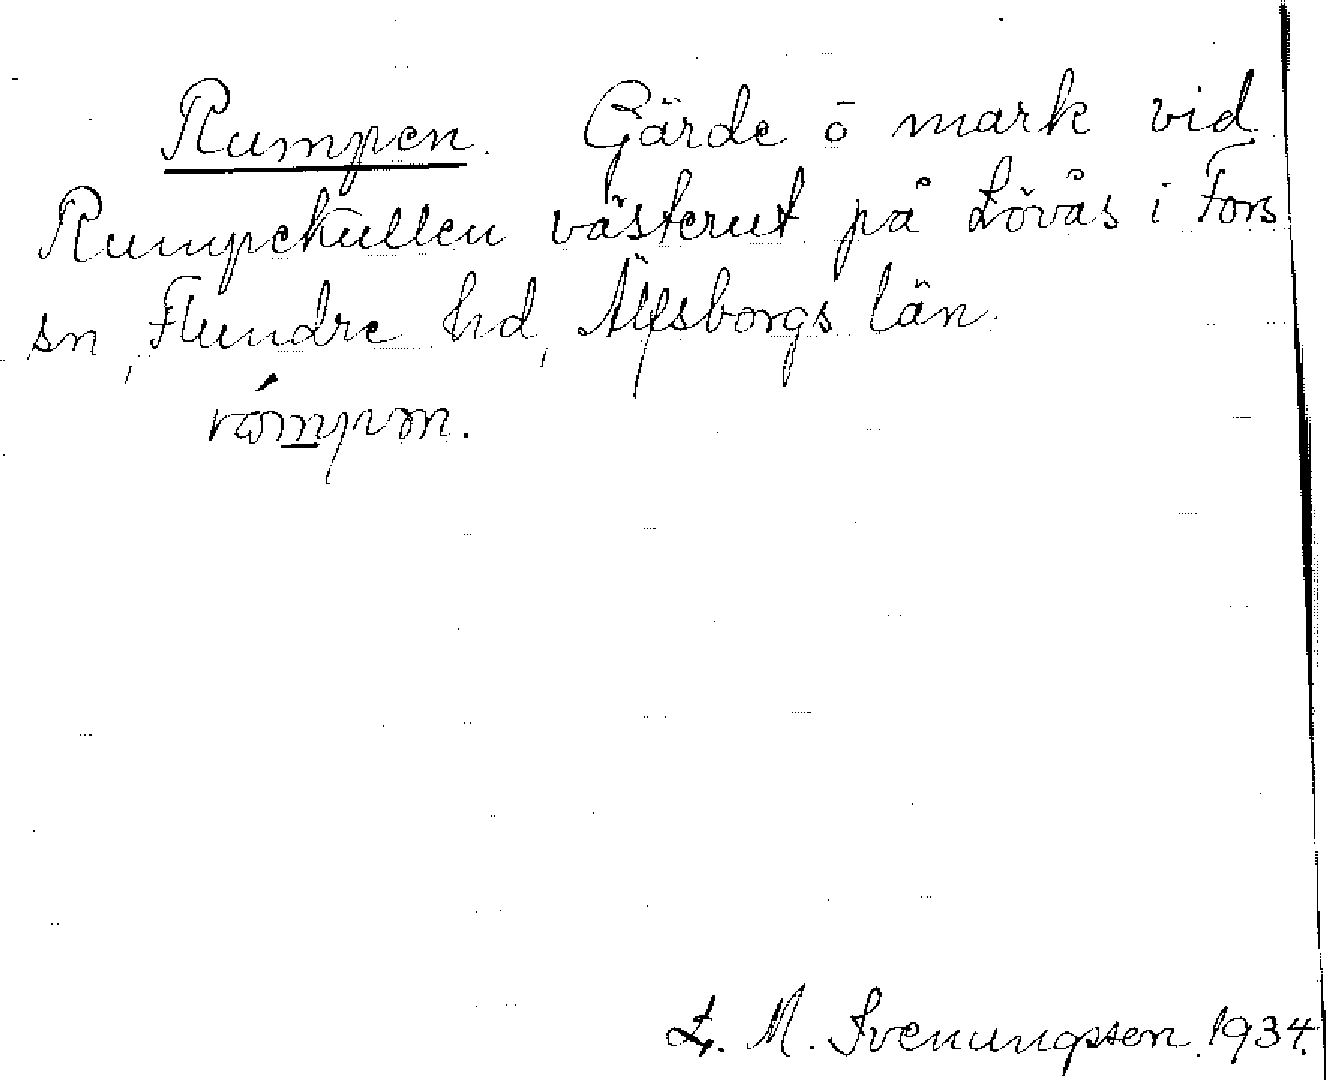 Rumpen. Gärde ö mark vid
Rumpekullen västerut på Lövås i Fors
sn, Flundre hd, Älfsborgs län.
rómpən.
L. M. Svenungsson. 1934.